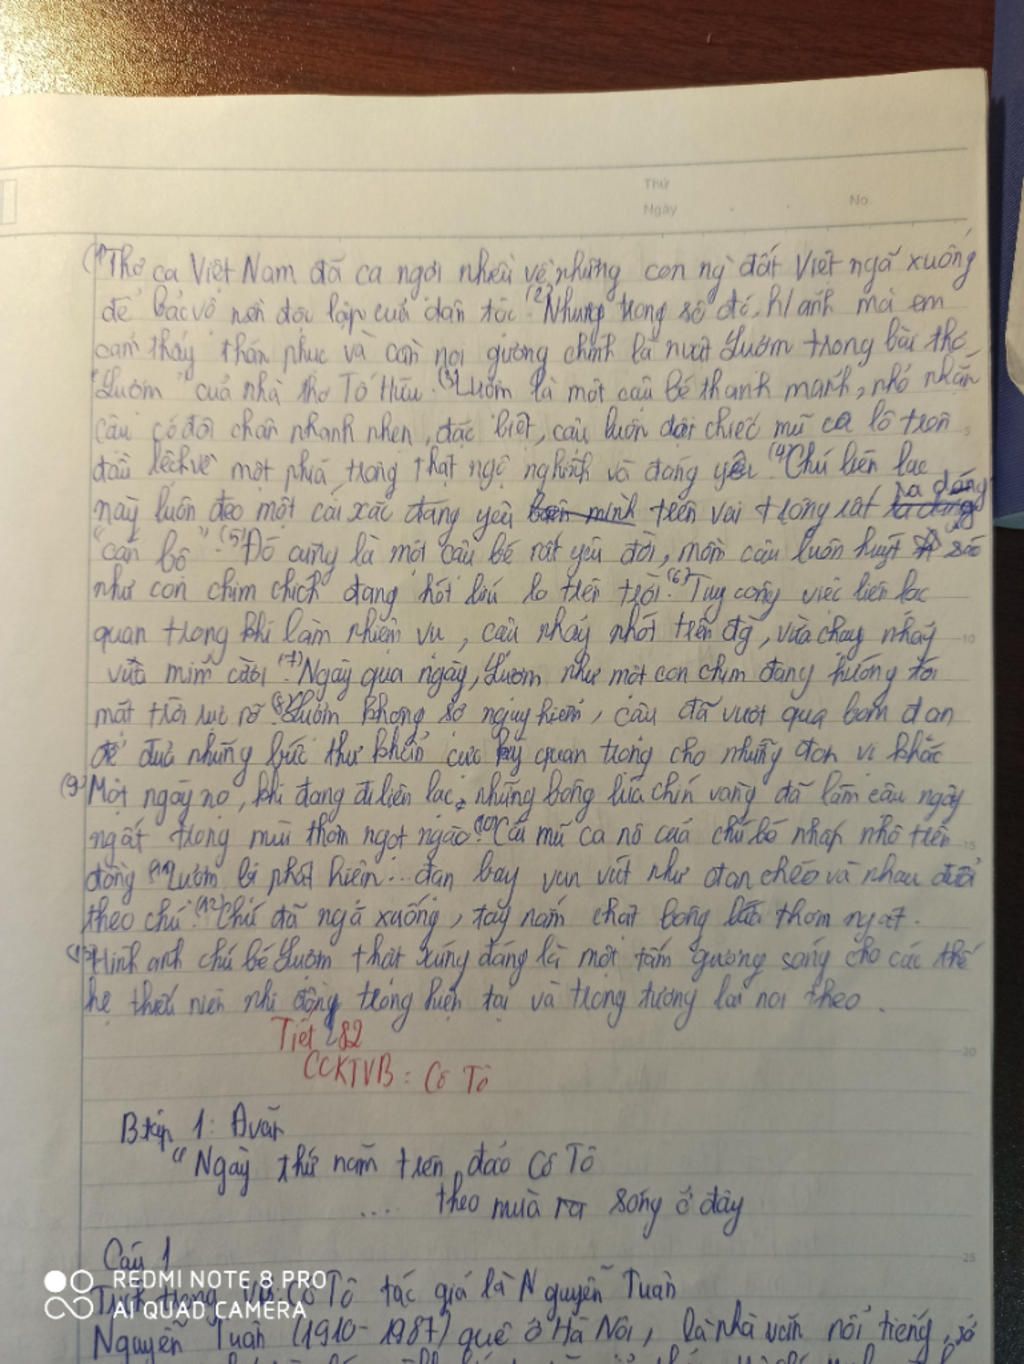 Thứ
Ngày
No.
(1) Thơ ca Việt Nam đã ca ngợi nhiều về những con ng` đất Việt ngã xuống
để bảo vệ nền độc lập của dân tộc. (2) Nhưng trong số đó, h/ảnh mà em
cảm thấy thán phục và cần noi gương chính là Lượm trong bài thơ
"Lượm" của nhà thơ Tố Hữu. (3) Lượm là một cậu bé thanh mảnh, nhỏ nhắn
cậu có đôi chân nhanh nhẹn, đặc biệt, cậu luôn đội chiếc mũ ca lô trên
đầu lệch về một phía trông thật ngộ nghĩnh và đáng yêu. (4) Chú liên lạc
này luôn đeo một cái xắc đáng yêu bên mình trên vai trông rất ra dáng
"cán bộ". (5) Đó cũng là một cậu bé rất yêu đời, mồm cậu luôn huýt sáo
như con chim chích đang hót líu lo trên trời. (6) Tuy công việc liên lạc
quan trọng khi làm nhiệm vụ, cậu nhảy nhót trên đg`, vừa chạy nhảy
vừa mỉm cười. (7) Ngày qua ngày, Lượm như một con chim đang hướng tới
mặt trời rực rỡ. (8) Lượm không sợ nguy hiểm, cậu đã vượt qua bom đạn
để đưa những bức thư khẩn cực kỳ quan trọng cho những đơn vị khác
(9) Một ngày nọ, khi đang đi liên lạc, những bông lúa chín vàng đã làm cậu ngây
ngất trong mùi thơm ngọt ngào. (10) Cái mũ ca nô của chú bé nhấp nhô trên
đồng (11) Lượm bị phát hiện... đạn bay vun vút như đan chéo và nhau đuổi
theo chú. (12) Chú đã ngã xuống, tay nắm chặt bông lúa thơm ngát.
(13) Hình ảnh chú bé Lượm thật xứng đáng là một tấm gương sáng cho các thế
hệ thiếu niên nhi đồng trong hiện tại và trong tương lai noi theo.
Tiết 82
CCKTVB: Cô Tô
Btập 1: Đvăn
"Ngày thứ năm trên đảo Cô Tô
.... theo mùa ra sóng ở đây
Câu 1
REDMI NOTE 8 PRO
AI QUAD CAMERA
Trích trong VB: Cô Tô tác giả là Nguyễn Tuân
Nguyễn Tuân (1910-1987) quê ở Hà Nội, là nhà văn nổi tiếng, có